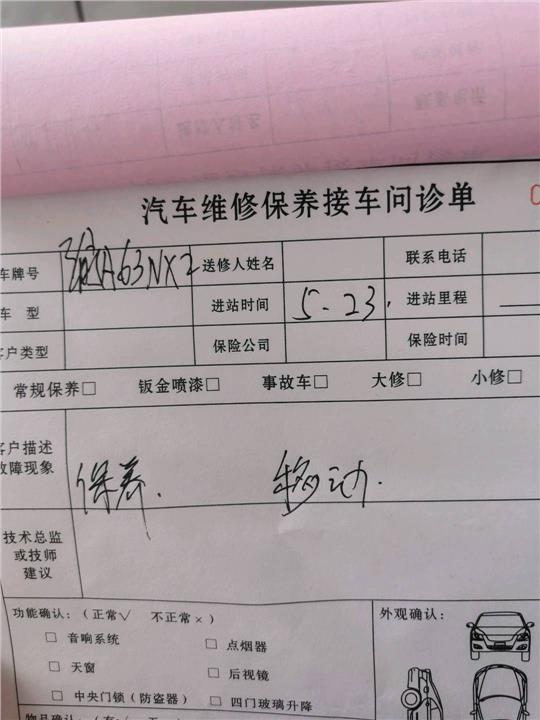 汽车维修保养接车问诊单
车牌号 渝A63NX2 送修人姓名 联系电话
车 型 进站时间 5-23. 进站里程
客户类型 保险公司 保险时间
常规保养□ 钣金喷漆□ 事故车□ 大修□ 小修□
客户描述
故障现象
保养. 移动.
技术总监
或技师
建议
功能确认：（正常√ 不正常×） 外观确认：
□ 音响系统 □ 点烟器
□ 天窗 □ 后视镜
□ 中央门锁（防盗器） □ 四门玻璃升降
物品确认：（有√